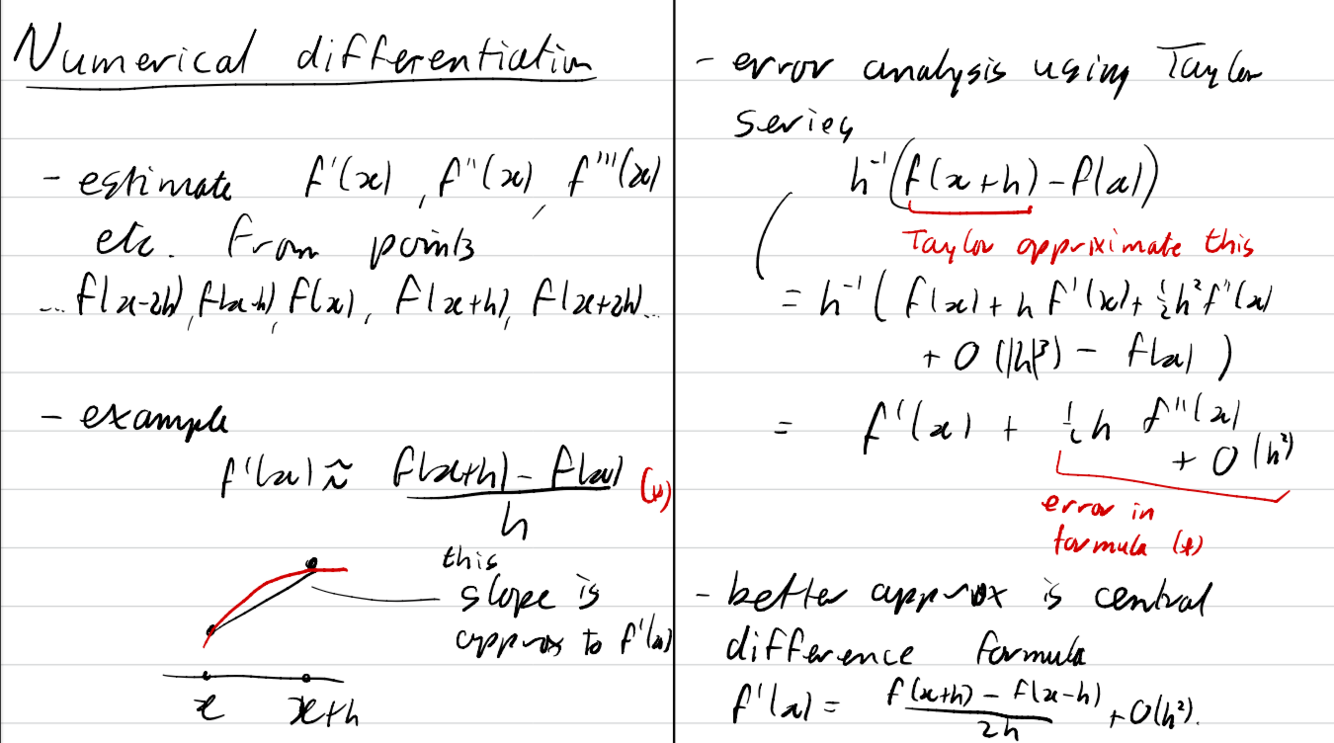 Numerical differentiation
- estimate f'(x), f''(x), f'''(x)
etc. from points
... f(x-2h), f(x-h), f(x), f(x+h), f(x+2h)...
- example
f'(x) ≈ f(x+h) - f(x) / h (*)
this
slope is
approx to f'(x)
x x+h
- error analysis using Taylor
series
h⁻¹(f(x+h) - f(x))
Taylor appriximate this
= h⁻¹( f(x) + h f'(x) + ½h² f''(x)
+ O(|h|³) - f(x) )
= f'(x) + ½ h f''(x)
+ O(h²)
error in
formula (*)
- better approx is central
difference formula
f'(x) = f(x+h) - f(x-h) / 2h + O(h²).